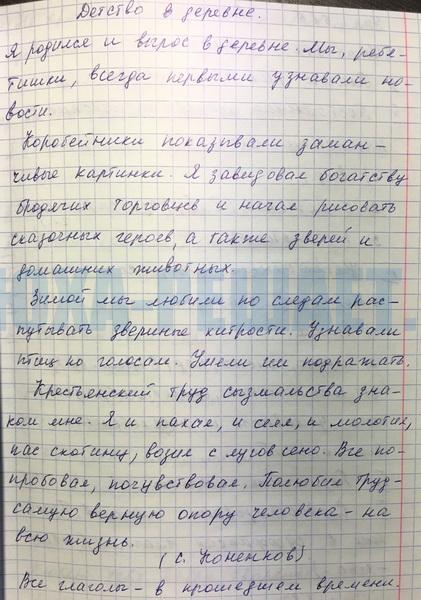 Детство в деревне.
Я родился и вырос в деревне. Мы, ребя-
тишки, всегда первыми узнавали но-
вости.
Коробейники показывали заман-
чивые картинки. Я завидовал богатству
бродячих торговцев и начал рисовать
сказочных героев, а также зверей и
домашних животных.
Зимой мы любили по следам рас-
путывать звериные хитрости. Узнавали
птиц по голосам. Умели им подражать.
Крестьянский труд сызмальства зна-
ком мне. Я и пахал, и сеял, и молотил,
пас скотину, возил с лугов сено. Все по-
пробовал, почувствовал. Полюбил труд-
самую верную опору человека - на
всю жизнь.
(С. Коненков)
Все глаголы - в прошедшем времени.